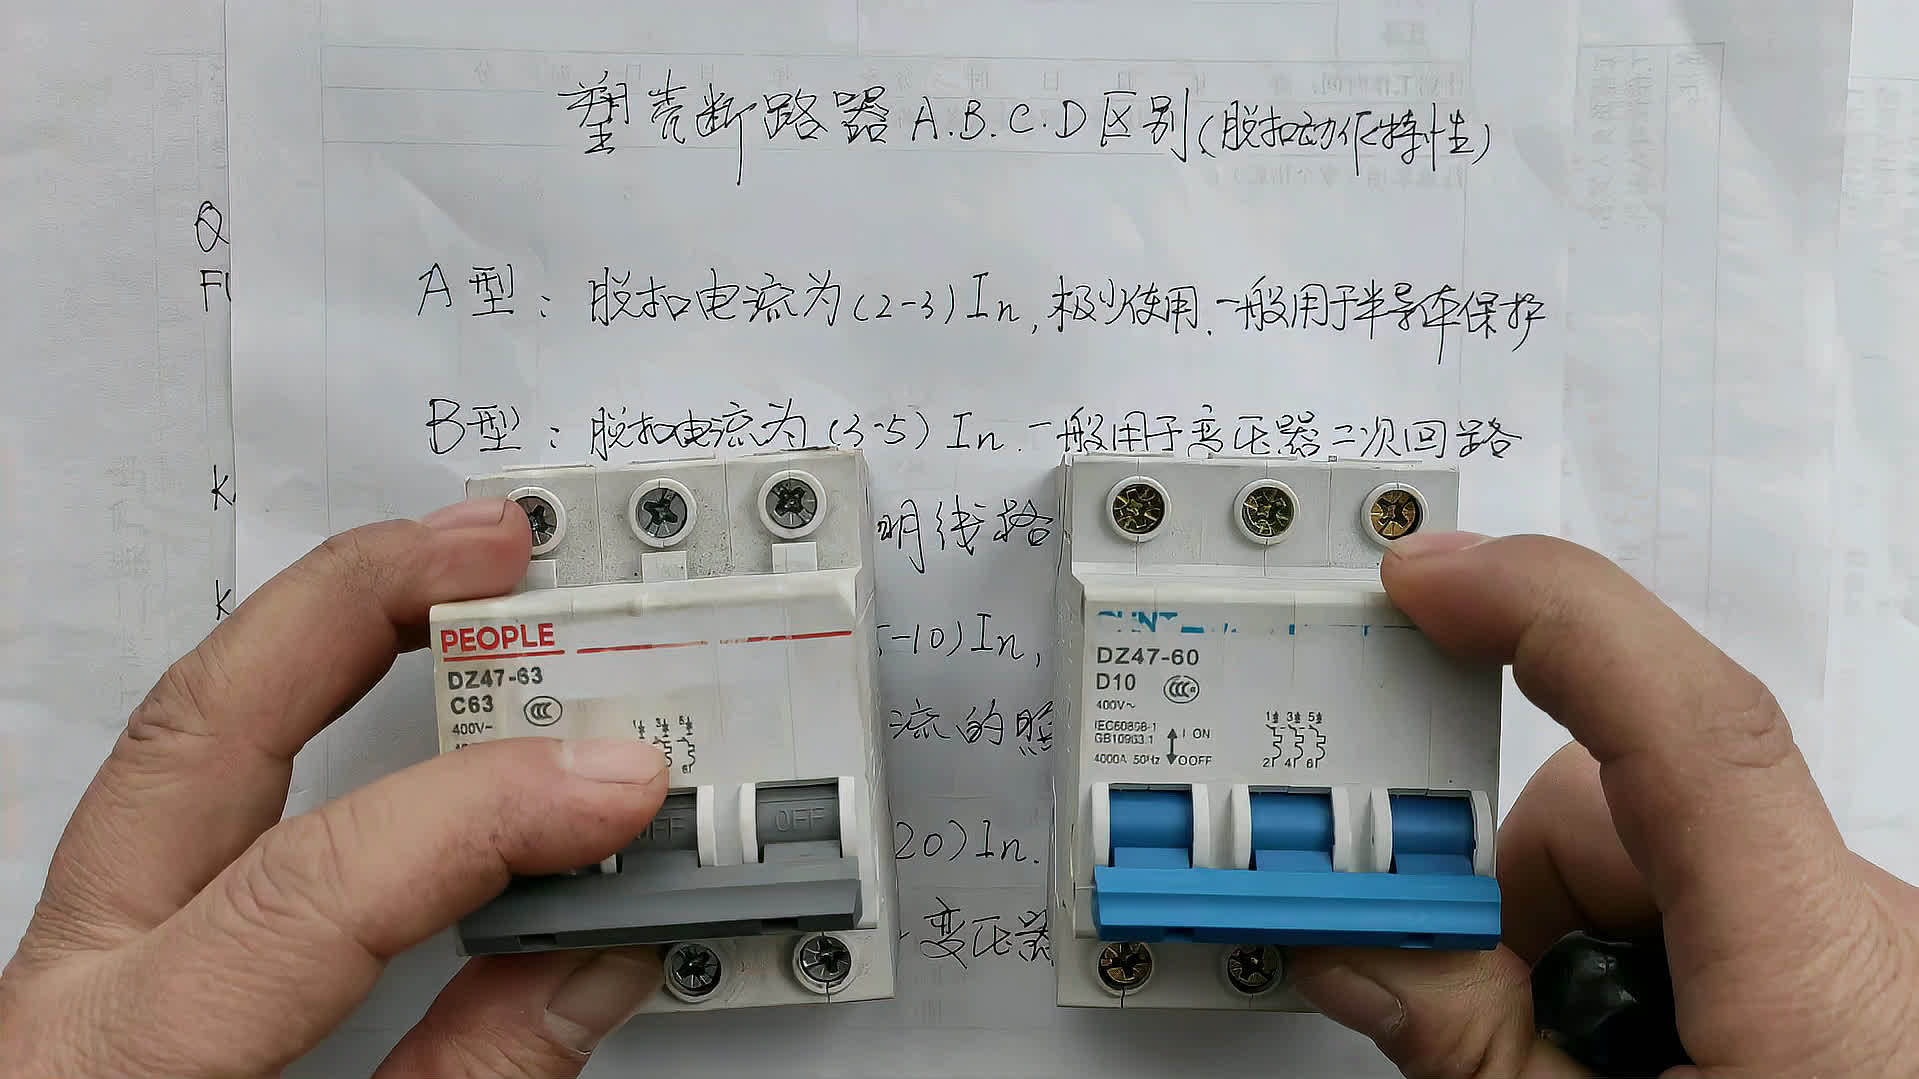 塑壳断路器 A.B.C.D区别(脱扣动作特性)
Q
FU
A型：脱扣电流为(2-3)In,极少使用.一般用于半导体保护
B型：脱扣电流为(3-5)In.一般用于变压器二次回路
K
明线路
K
-10)In,
流的照
20)In.
变压器
PEOPLE
DZ47-63
C63
400V~
1 3 5
6
OFF
OFF
CHNT
DZ47-60
D10
400V~
IEC60898-1
GB10963.1
4000A 50Hz
I ON
O OFF
1 3 5
2 4 6